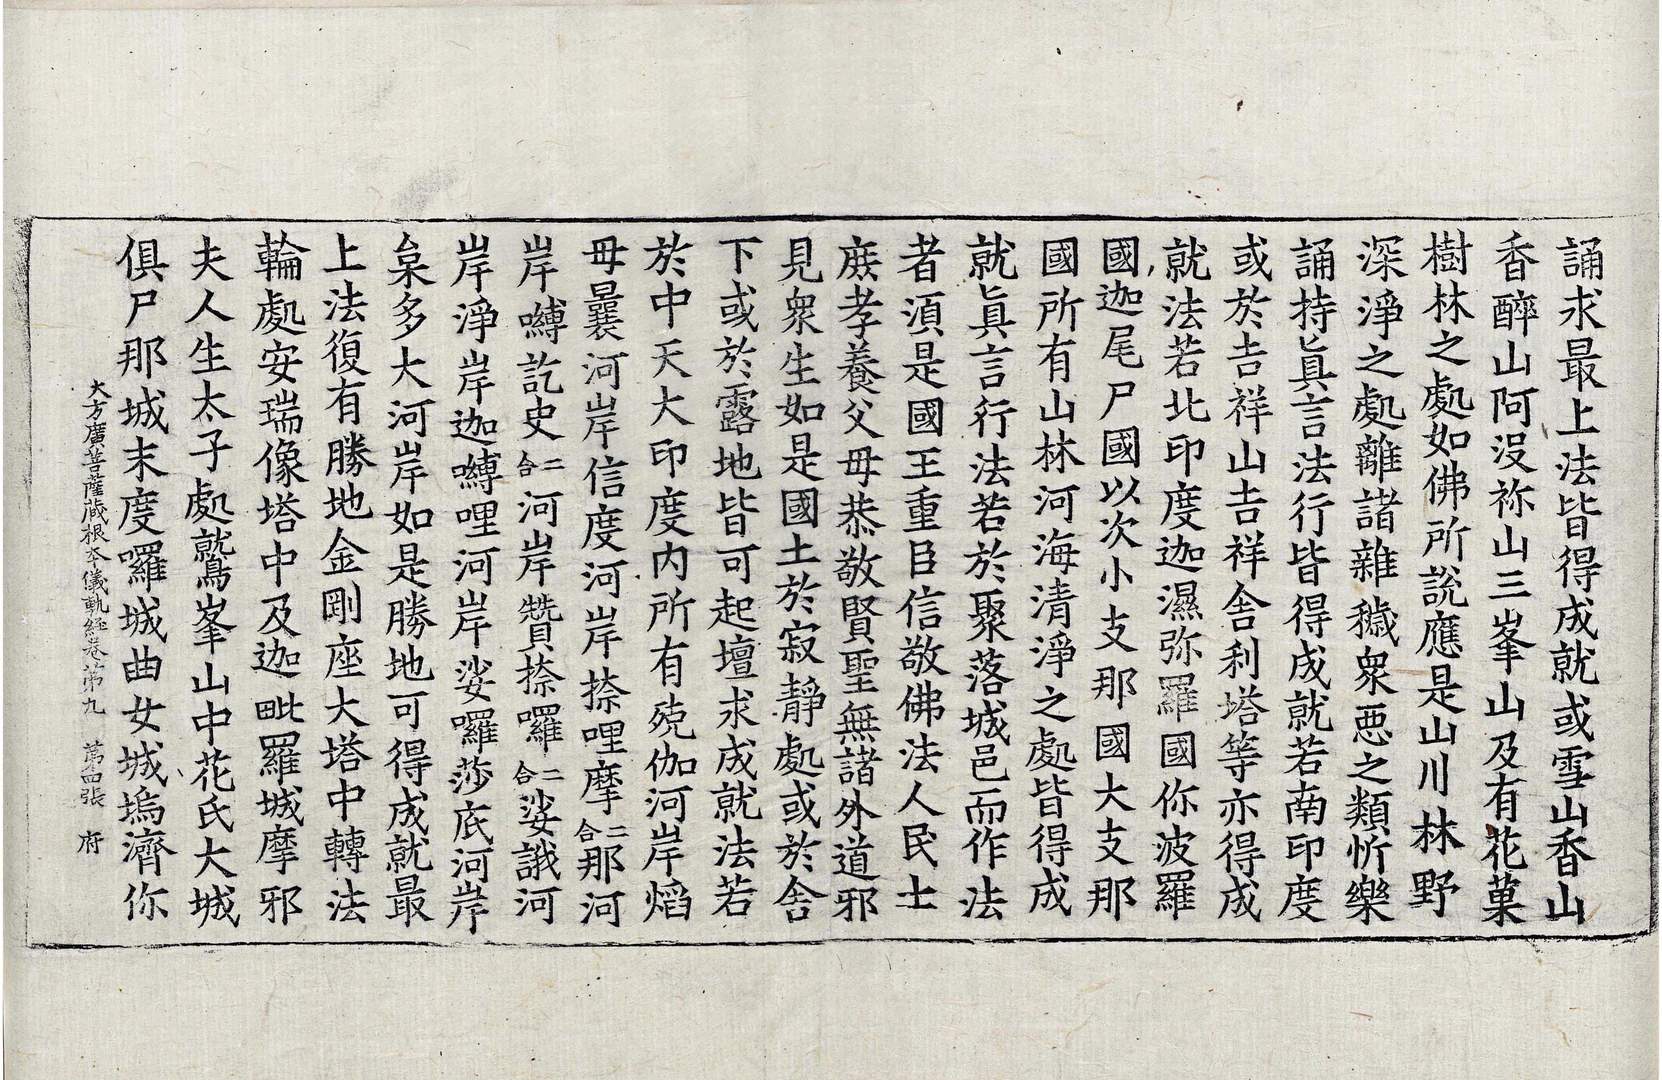 誦求最上法皆得成就或雪山香山
香醉山阿没祢山三峯山及有花菓
樹林之處如佛所說應是山川林野
深淨之處離諸雜穢衆悪之類忻樂
誦持眞言法行皆得成就若南印度
或於吉祥山吉祥舎利塔等亦得成
就法若北印度迦濕弥羅國你波羅
國迦尾尸國以次小支那國大支那
國所有山林河海清淨之處皆得成
就眞言行法若於聚落城邑而作法
者須是國王重臣信敬佛法人民士
庻孝養父母恭敬賢聖無諸外道邪
見衆生如是國土於寂靜處或於舎
下或於露地皆可起壇求成就法若
於中天大印度内所有殑伽河岸焰
母曩河岸信度河岸捺哩摩二合那河
岸嚩訖史二合河岸贊捺囉二合娑誐河
岸淨岸迦嚩哩河岸娑囉莎底河岸
枲多大河岸如是勝地可得成就最
上法復有勝地金剛座大塔中轉法
輪處安瑞像塔中及迦毗羅城摩邪
夫人生太子處鷲峯山中花氏大城
俱尸那城末度囉城曲女城塢濟你
大方廣菩薩蔵根夲儀軌経巻第九 第四張 府